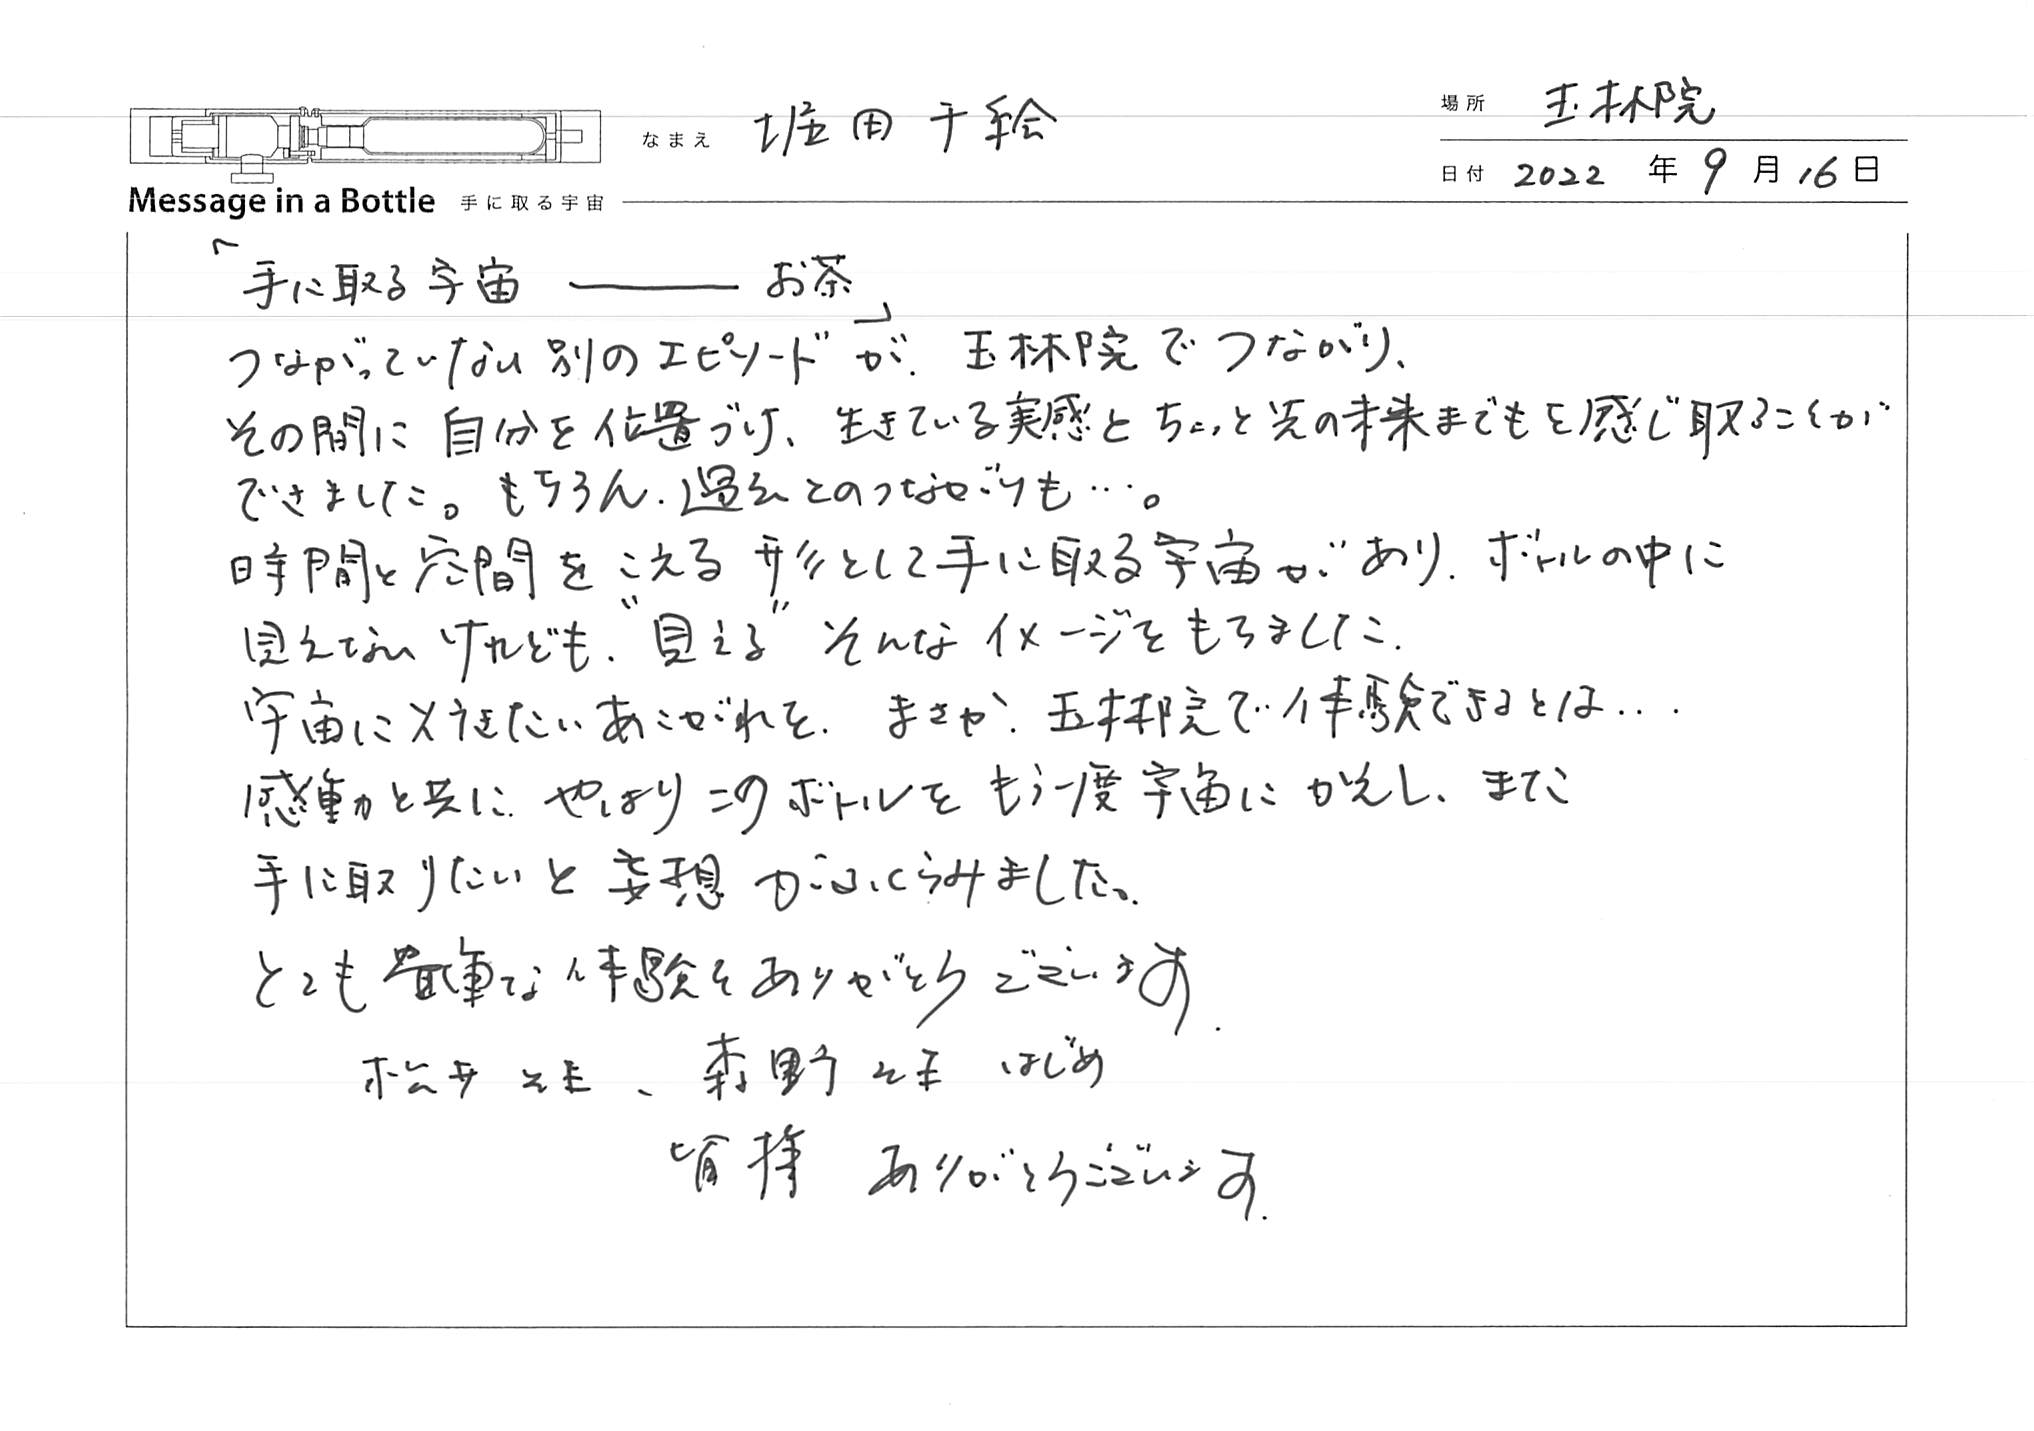 なまえ 堀田千絵
場所 玉林院
日付 2022 年 9 月 16 日
Message in a Bottle 手に取る宇宙
「手に取る宇宙 ――― お茶」
つながっていない別のエピソードが、玉林院でつながり、
その間に自分を位置づけ、生きている実感とちょっと先の未来までもを感じ取ることが
できました。もちろん、過去とのつながりも…。
時間と空間をこえる形として手に取る宇宙があり、ボトルの中に
見えてないけれども、"見える"そんなイメージをもちました。
宇宙にいきたいあこがれを、まさか、玉林院で体験できるとは...
感動と共に、やはりこのボトルをもう一度宇宙にかえし、また
手に取りたいと妄想がふくらみました。
とても貴重な体験をありがとうございます.
松井さま、森野さま はじめ
皆様 ありがとうございます.